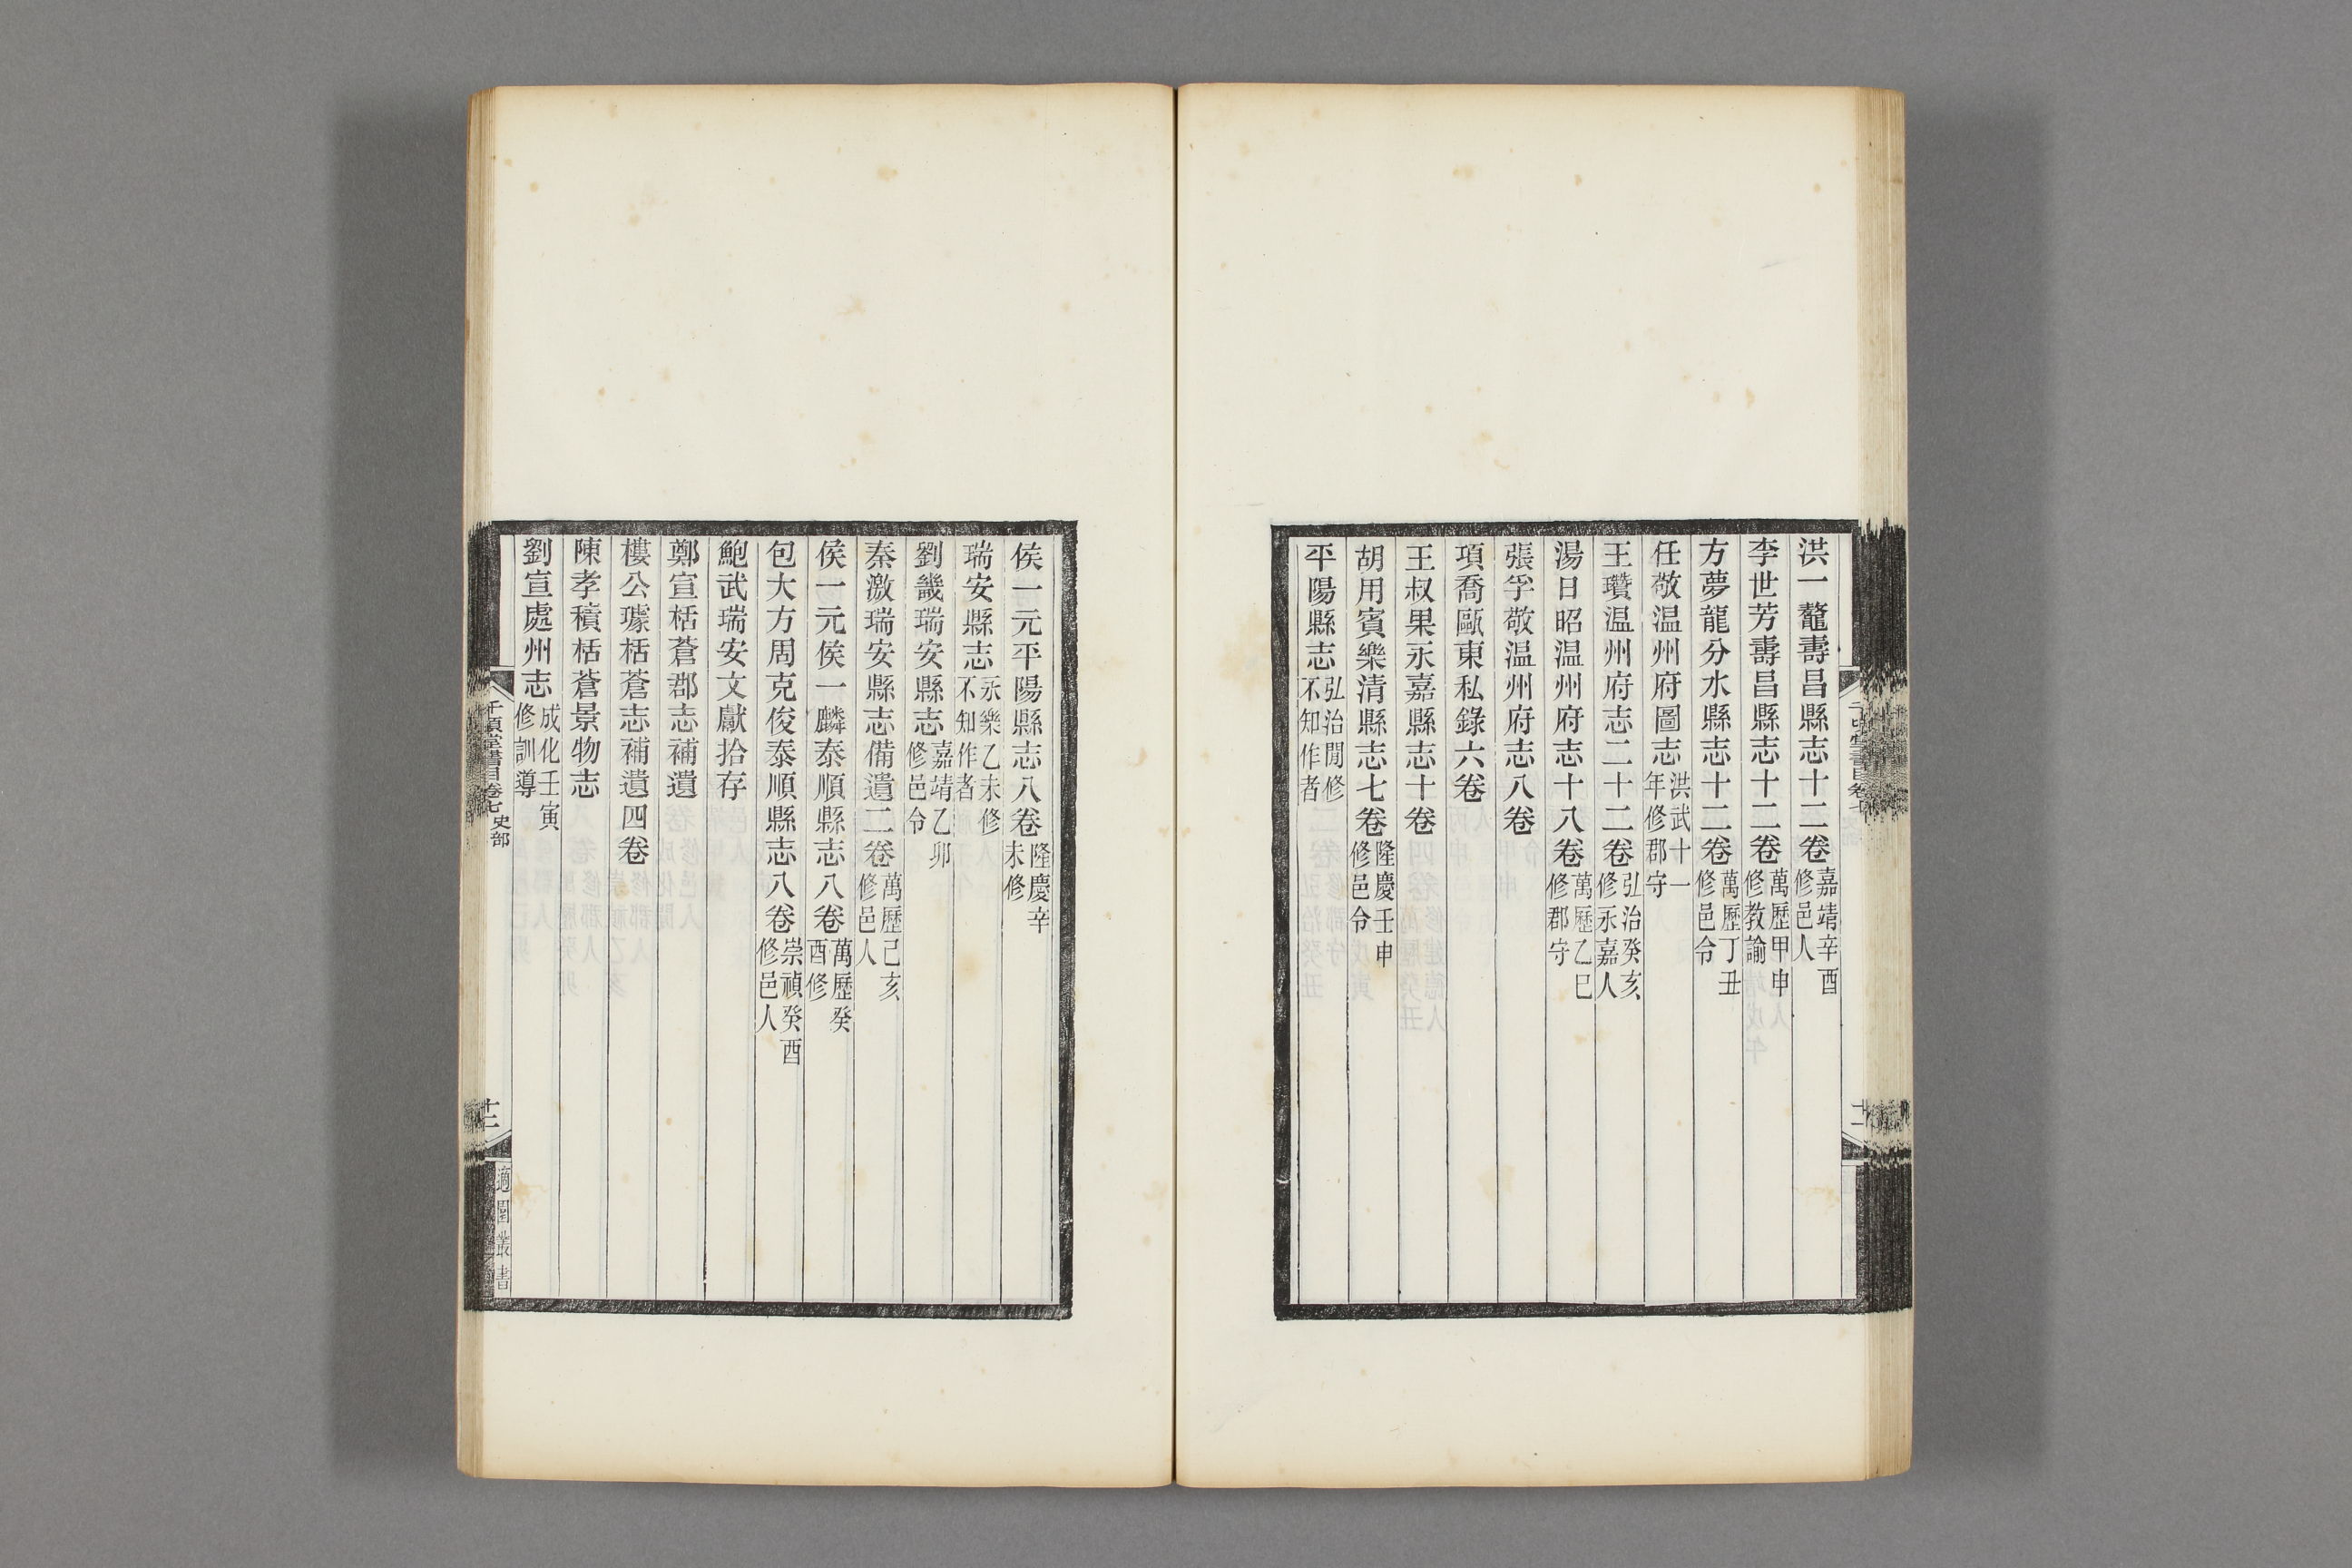 洪一鼇壽昌縣志十二卷嘉靖辛酉修邑人
李世芳壽昌縣志十二卷萬歷甲申修教諭
方夢龍分水縣志十二卷萬歷丁丑修邑令
任敬温州府圖志洪武十一年修郡守
王瓚温州府志二十二卷弘治癸亥修永嘉人
湯日昭温州府志十八卷萬歷乙巳修郡守
張孚敬温州府志八卷
項喬甌東私錄六卷
王叔果永嘉縣志十卷
胡用賓樂清縣志七卷隆慶壬申修邑令
平陽縣志弘治間修不知作者
侯一元平陽縣志八卷隆慶辛未修
瑞安縣志永樂乙未修不知作者
劉畿瑞安縣志嘉靖乙卯修邑令
秦激瑞安縣志備遺二卷萬歷己亥修邑人
侯一元侯一麟泰順縣志八卷萬歷癸酉修
包大方周克俊泰順縣志八卷崇禎癸酉修邑人
鮑武瑞安文獻拾存
鄭宣栝蒼郡志補遺
樓公璩栝蒼志補遺四卷
陳孝積栝蒼景物志
劉宣處州志成化壬寅修訓導
千頃堂書目卷七 史部
十二
適園叢書